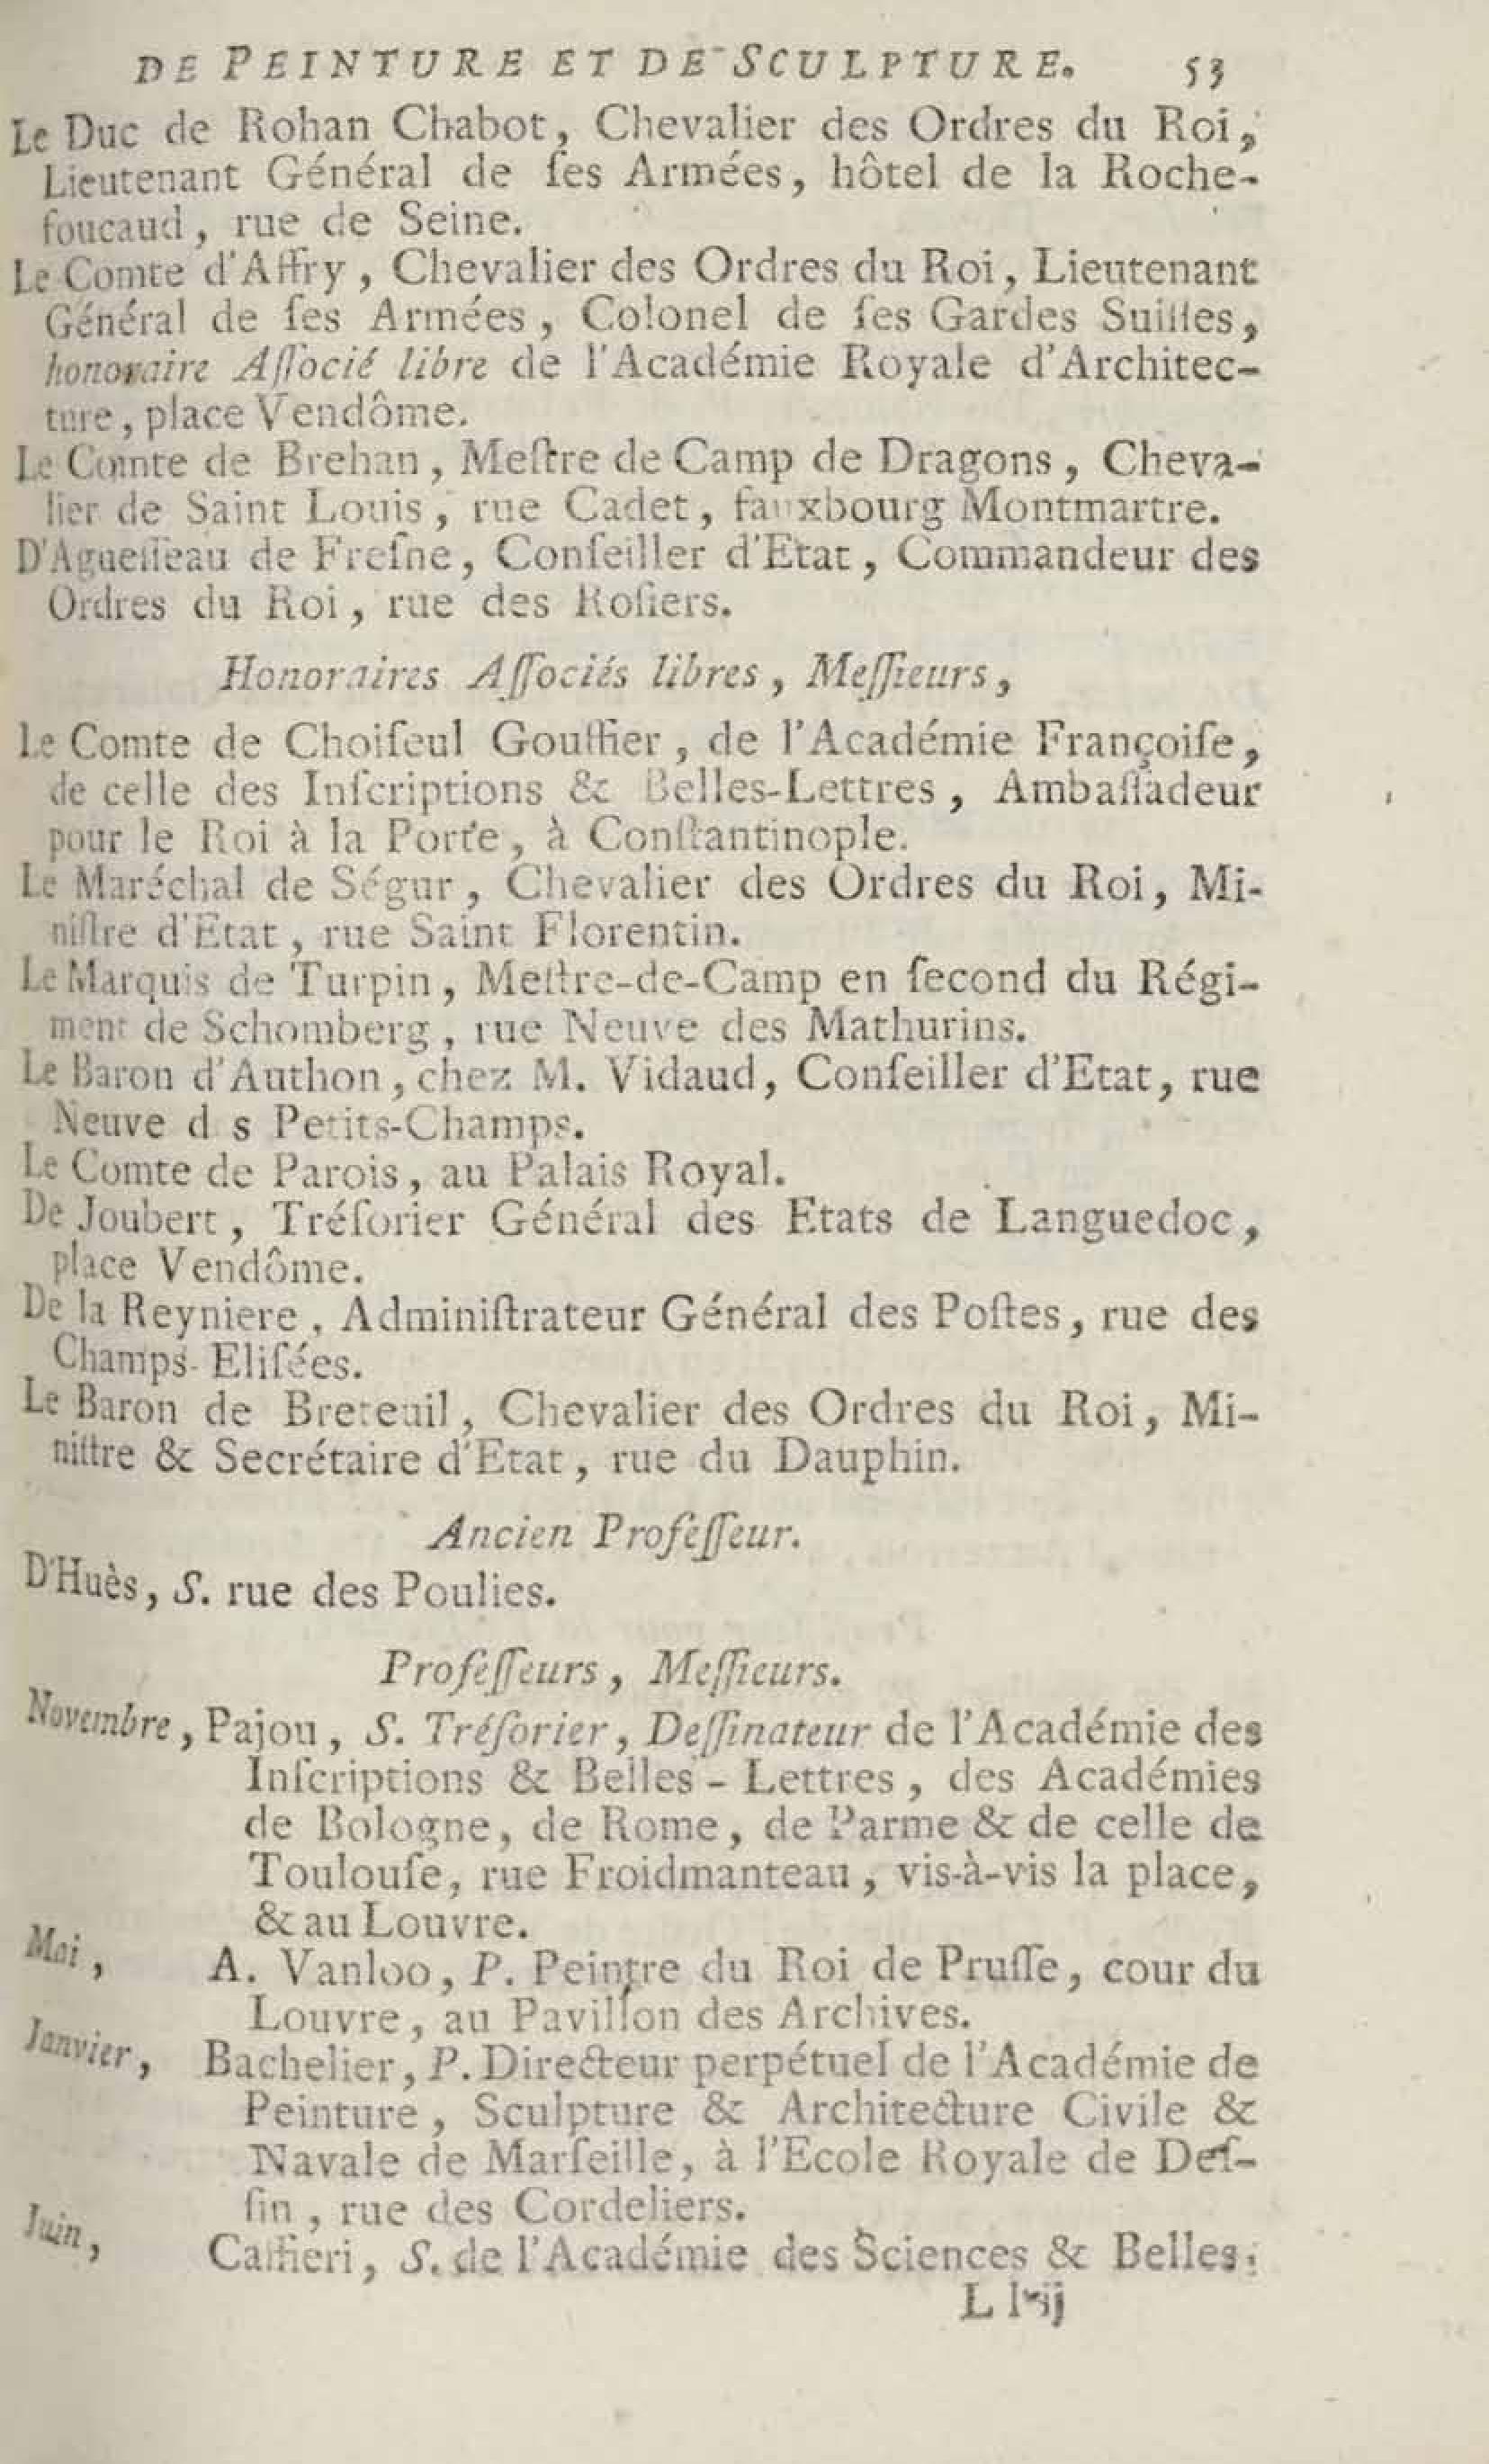 DE PEINTURE ET DE SCULPTURE. 53
Le Duc de Rohan Chabot, Chevalier des Ordres du Roi,
Lieutenant Général de ſes Armées, hôtel de la Roche-
foucaud, rue de Seine.
Le Comte d'Affry, Chevalier des Ordres du Roi, Lieutenant
Général de ſes Armées, Colonel de ſes Gardes Suiſſes,
honoraire Aſſocié libre de l'Académie Royale d'Architec-
ture, place Vendôme.
Le Comte de Brehan, Meſtre de Camp de Dragons, Cheva-
lier de Saint Louis, rue Cadet, fauxbourg Montmartre.
D'Agueſſeau de Freſne, Conſeiller d'Etat, Commandeur des
Ordres du Roi, rue des Roſiers.
Honoraires Aſſociés libres, Meſſieurs,
Le Comte de Choiſeul Gouffier, de l'Académie Françoiſe,
de celle des Inſcriptions & Belles-Lettres, Ambaſſadeur
pour le Roi à la Porte, à Conſtantinople.
Le Maréchal de Ségur, Chevalier des Ordres du Roi, Mi-
niſtre d'Etat, rue Saint Florentin.
Le Marquis de Turpin, Meſtre-de-Camp en ſecond du Régi-
ment de Schomberg, rue Neuve des Mathurins.
Le Baron d'Authon, chez M. Vidaud, Conſeiller d'Etat, rue
Neuve d s Petits-Champs.
Le Comte de Parois, au Palais Royal.
De Joubert, Tréſorier Général des Etats de Languedoc,
place Vendôme.
De la Reyniere, Adminiſtrateur Général des Poſtes, rue des
Champs-Eliſées.
Le Baron de Breteuil, Chevalier des Ordres du Roi, Mi-
niſtre & Secrétaire d'Etat, rue du Dauphin.
Ancien Profeſſeur.
D'Huès, S. rue des Poulies.
Profeſſeurs, Meſſieurs.
Novembre, Pajou, S. Tréſorier, Deſſinateur de l'Académie des
Inſcriptions & Belles-Lettres, des Académies
de Bologne, de Rome, de Parme & de celle de
Toulouſe, rue Froidmanteau, vis-à-vis la place,
& au Louvre.
Mai, A. Vanloo, P. Peintre du Roi de Pruſſe, cour du
Louvre, au Pavillon des Archives.
Janvier, Bachelier, P. Directeur perpétuel de l'Académie de
Peinture, Sculpture & Architecture Civile &
Navale de Marſeille, à l'Ecole Royale de Deſ-
ſin, rue des Cordeliers.
Juin, Caffieri, S. de l'Académie des Sciences & Belles-
L l ij